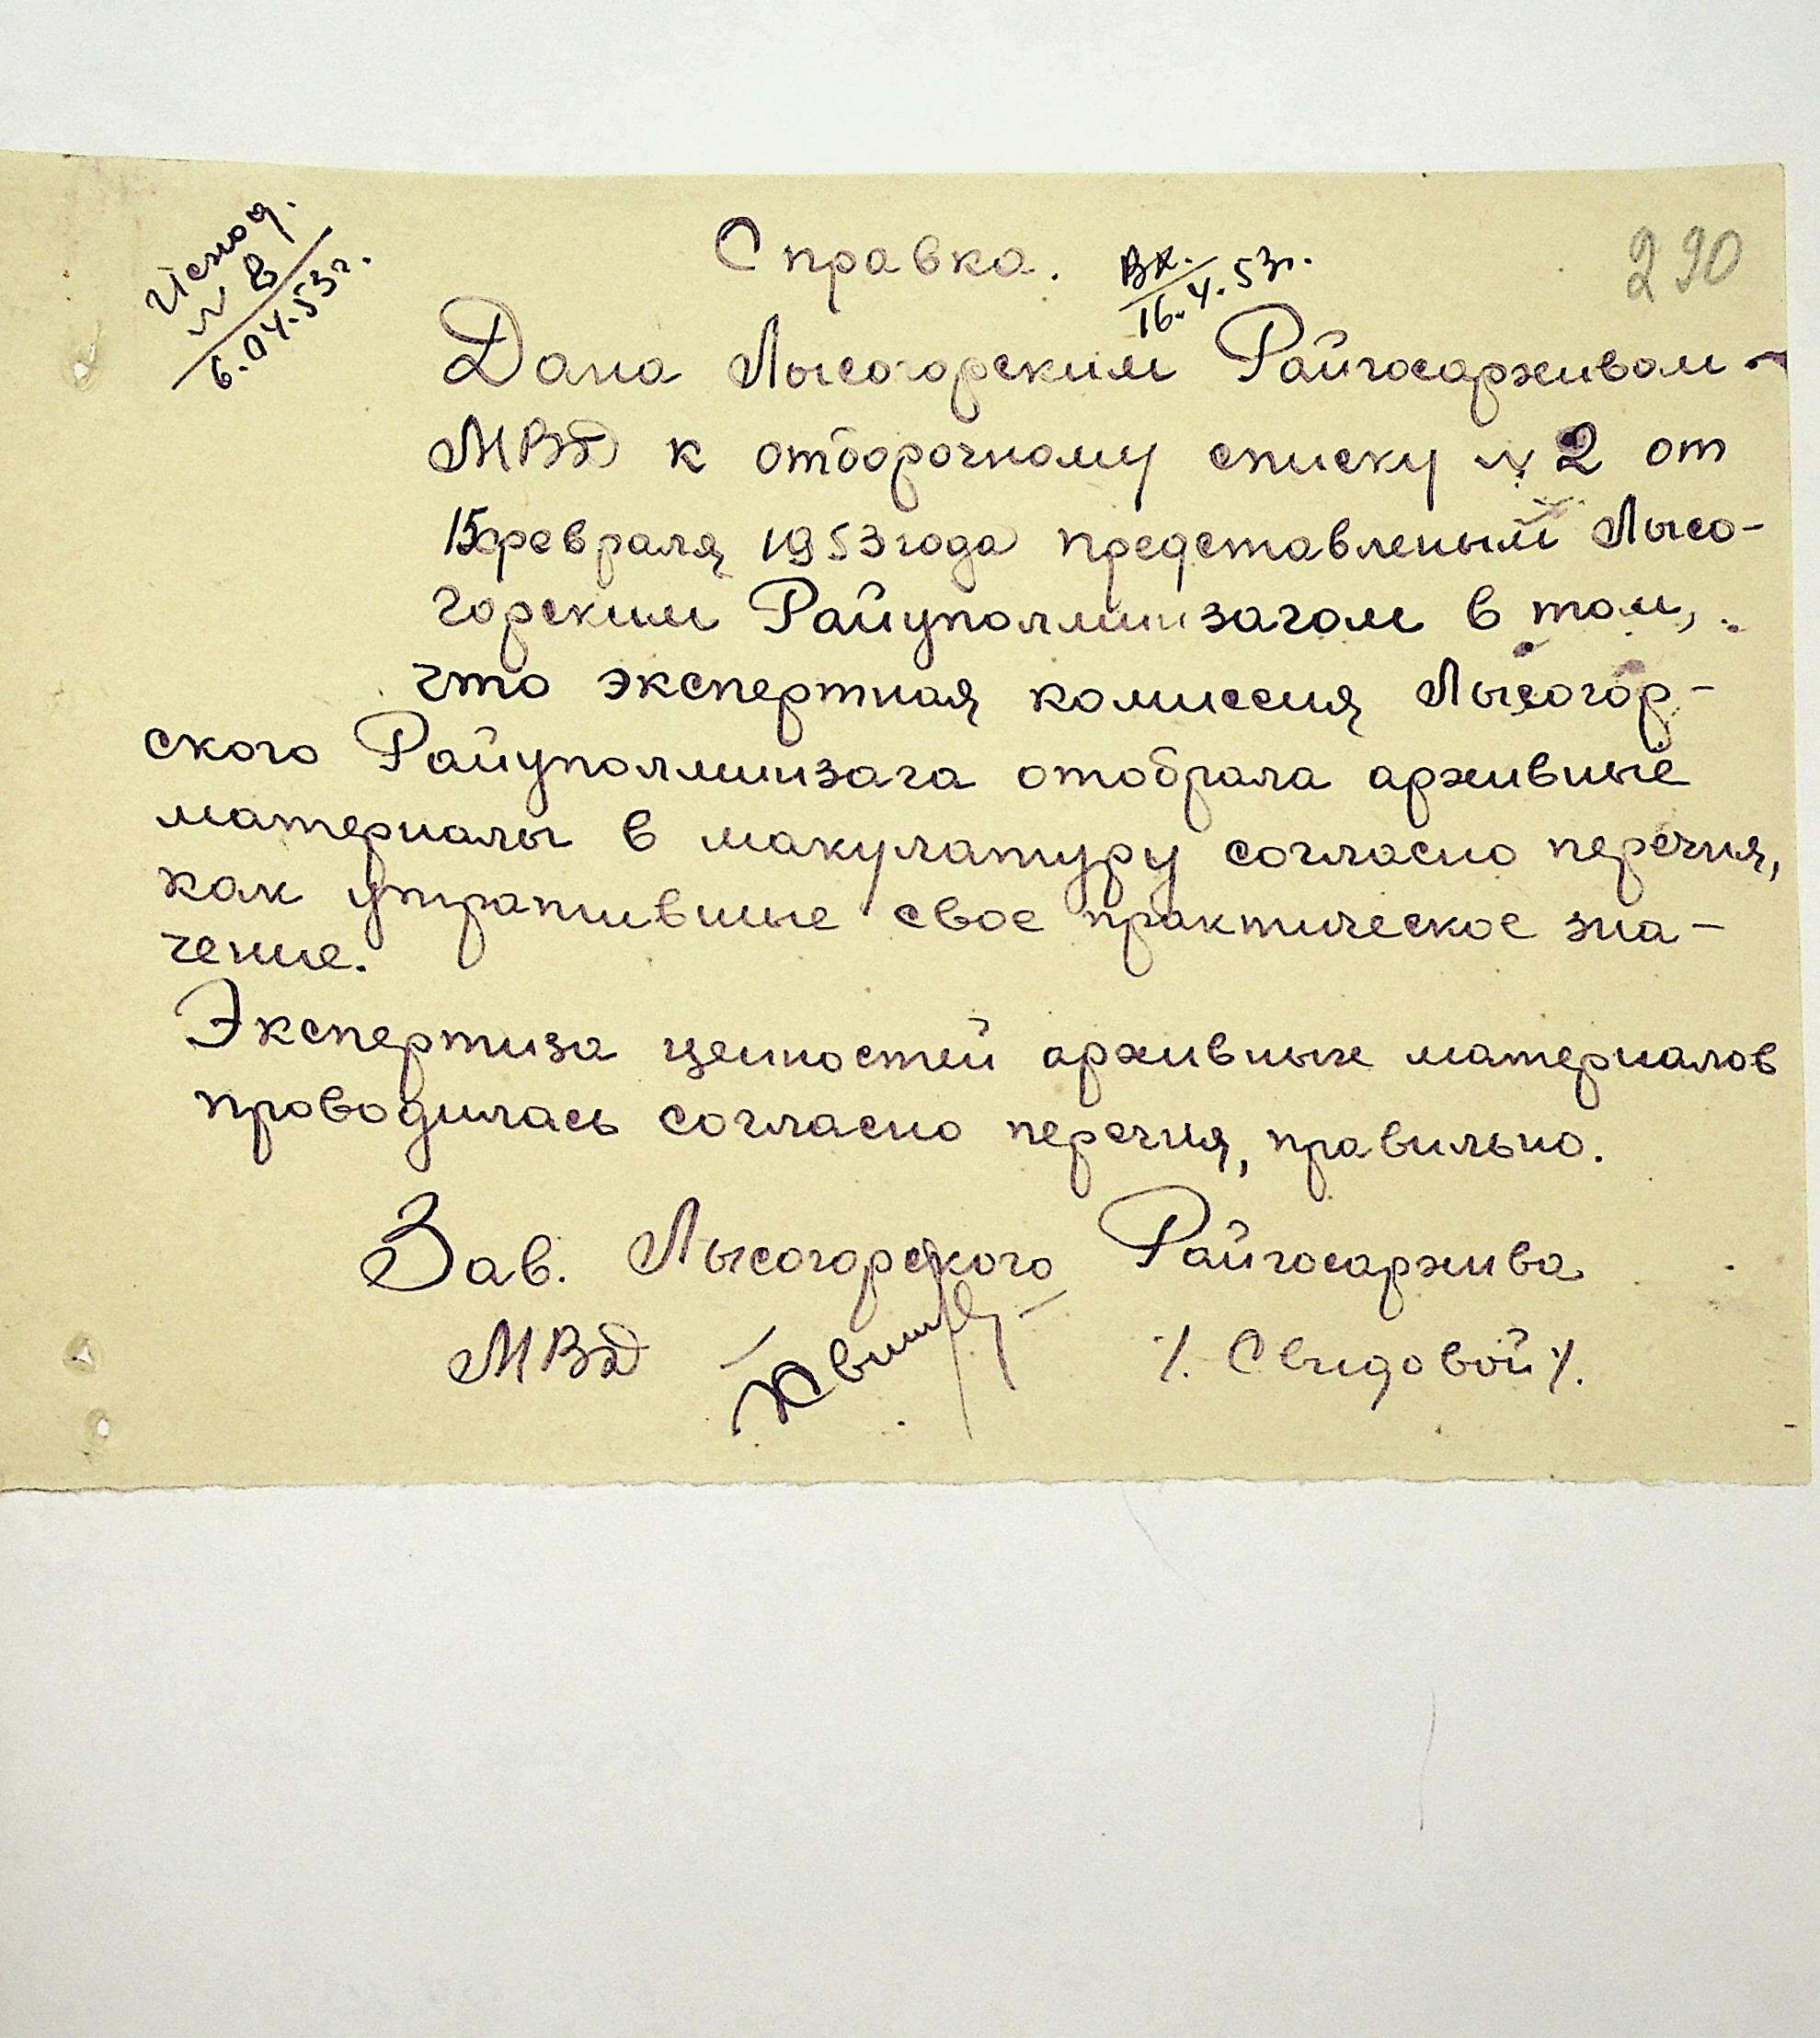 Исход.
№ 8
6.04.53г.
Справка.
Вх.
16.4.53г.
290
Дана Лысогорским Райгосархивом
МВД к отборочному списку № 2 от
15 февраля 1953 года представленым Лысо-
горским Райуполминзагом в том,
что экспертная комиссия Лысогор-
ского Райуполминзага отобрала архивные
материалы в макулатуру согласно перечня,
как утратившие свое практическое зна-
чение.
Экспертиза ценностей архивных материалов
проводилась согласно перечня, правильно.
Зав. Лысогорского Райгосархива
МВД /. Свидовой /.